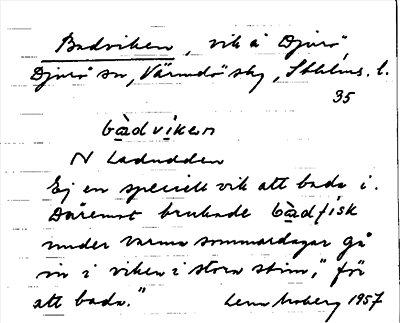 Badviken, vik å Djurö,
Djurö sn, Värmdö skg, Sthlms. l.
35
bàdvìken
N Ladudden
Ej en speciell vik att bada i.
Däremot brukade bàdfisk
under varma sommardagar gå
in i viken i stora stim, "för
att bada."
Lena Moberg 1957